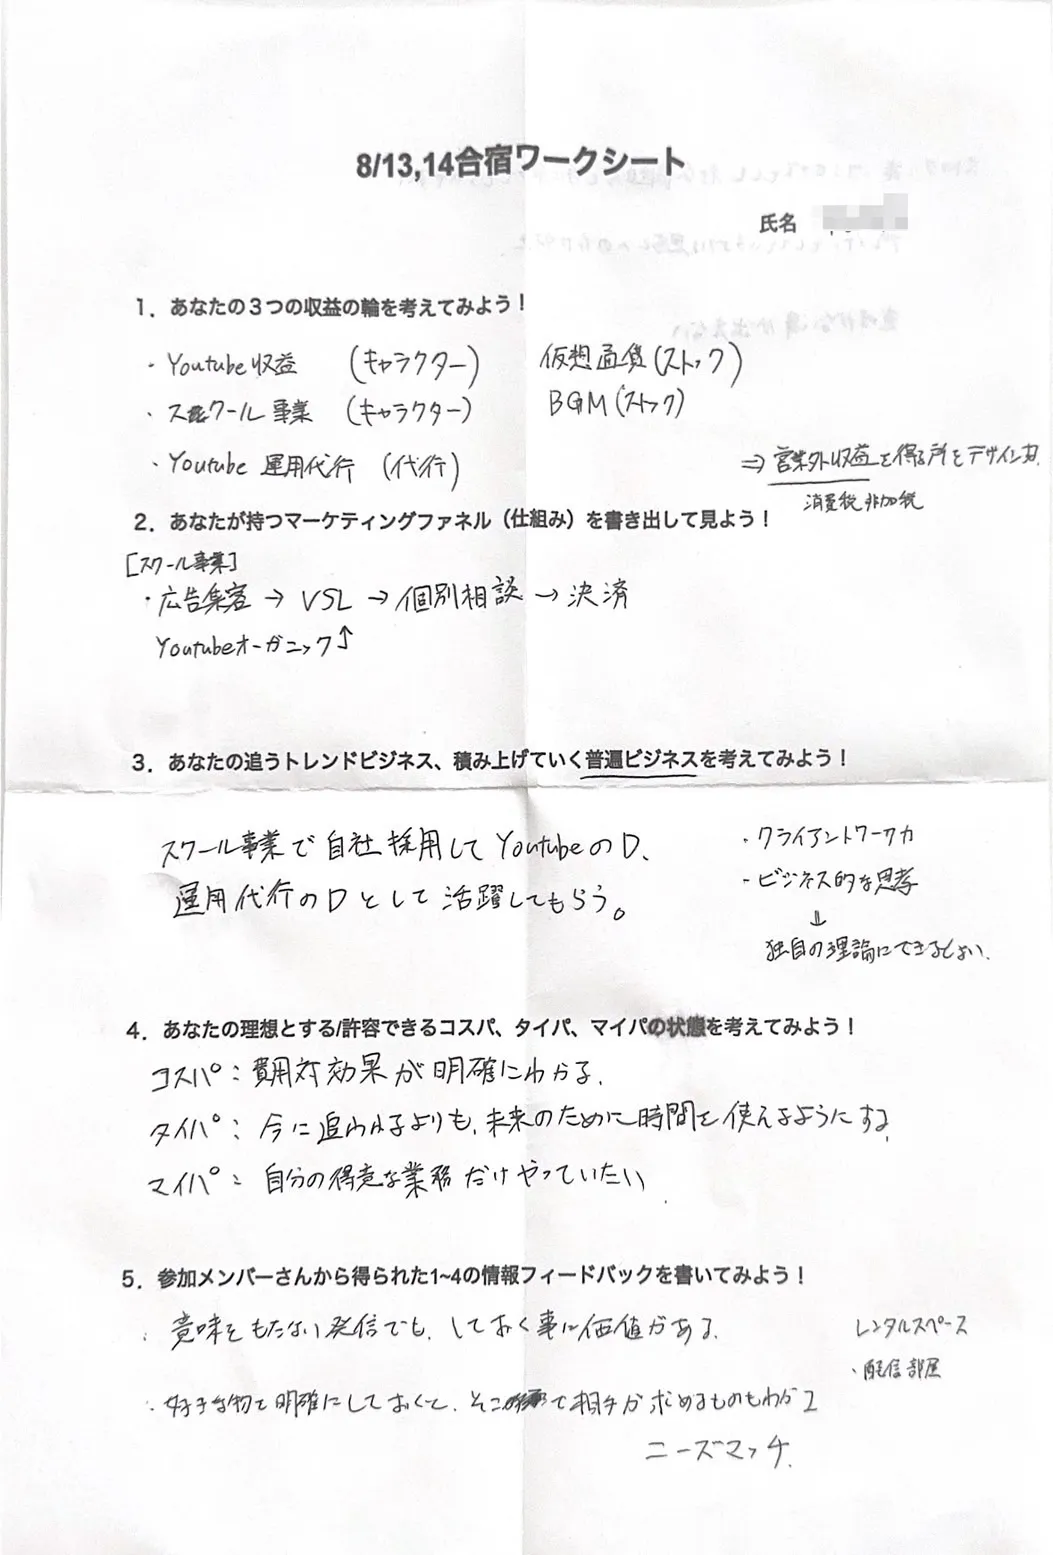 8/13,14合宿ワークシート
氏名
1. あなたの3つの収益の輪を考えてみよう!
・Youtube収益 (キャラクター) 仮想通貨(ストック)
・スクール事業 (キャラクター) BGM(ストック)
・Youtube 運用代行 (代行)
⇒ 営業外収益を得る所をデザイン
消費税非加税
2. あなたが持つマーケティングファネル(仕組み)を書き出して見よう!
[スクール事業]
・広告集客 → VSL → 個別相談 → 決済
Youtubeオーガニック↑
3. あなたの追うトレンドビジネス、積み上げていく普遍ビジネスを考えてみよう!
スクール事業で自社採用してYoutubeのD、
運用代行のDとして活躍してもらう。
・クライアントワーク力
・ビジネス的な思考
⇓
独自の理論にできるとよい.
4. あなたの理想とする/許容できるコスパ、タイパ、マイパの状態を考えてみよう!
コスパ:費用対効果が明確にわかる.
タイパ:今に追われるよりも、未来のために時間を使えるようにする
マイパ:自分の得意な業務だけやっていたい
5. 参加メンバーさんから得られた1~4の情報フィードバックを書いてみよう!
・意味をもたない発信でも、しておく事に価値がある.
レンタルスペース
・配信部屋
・好きな物を明確にしておくと、そこで相手が求めるものもわかって
ニーズマッチ.